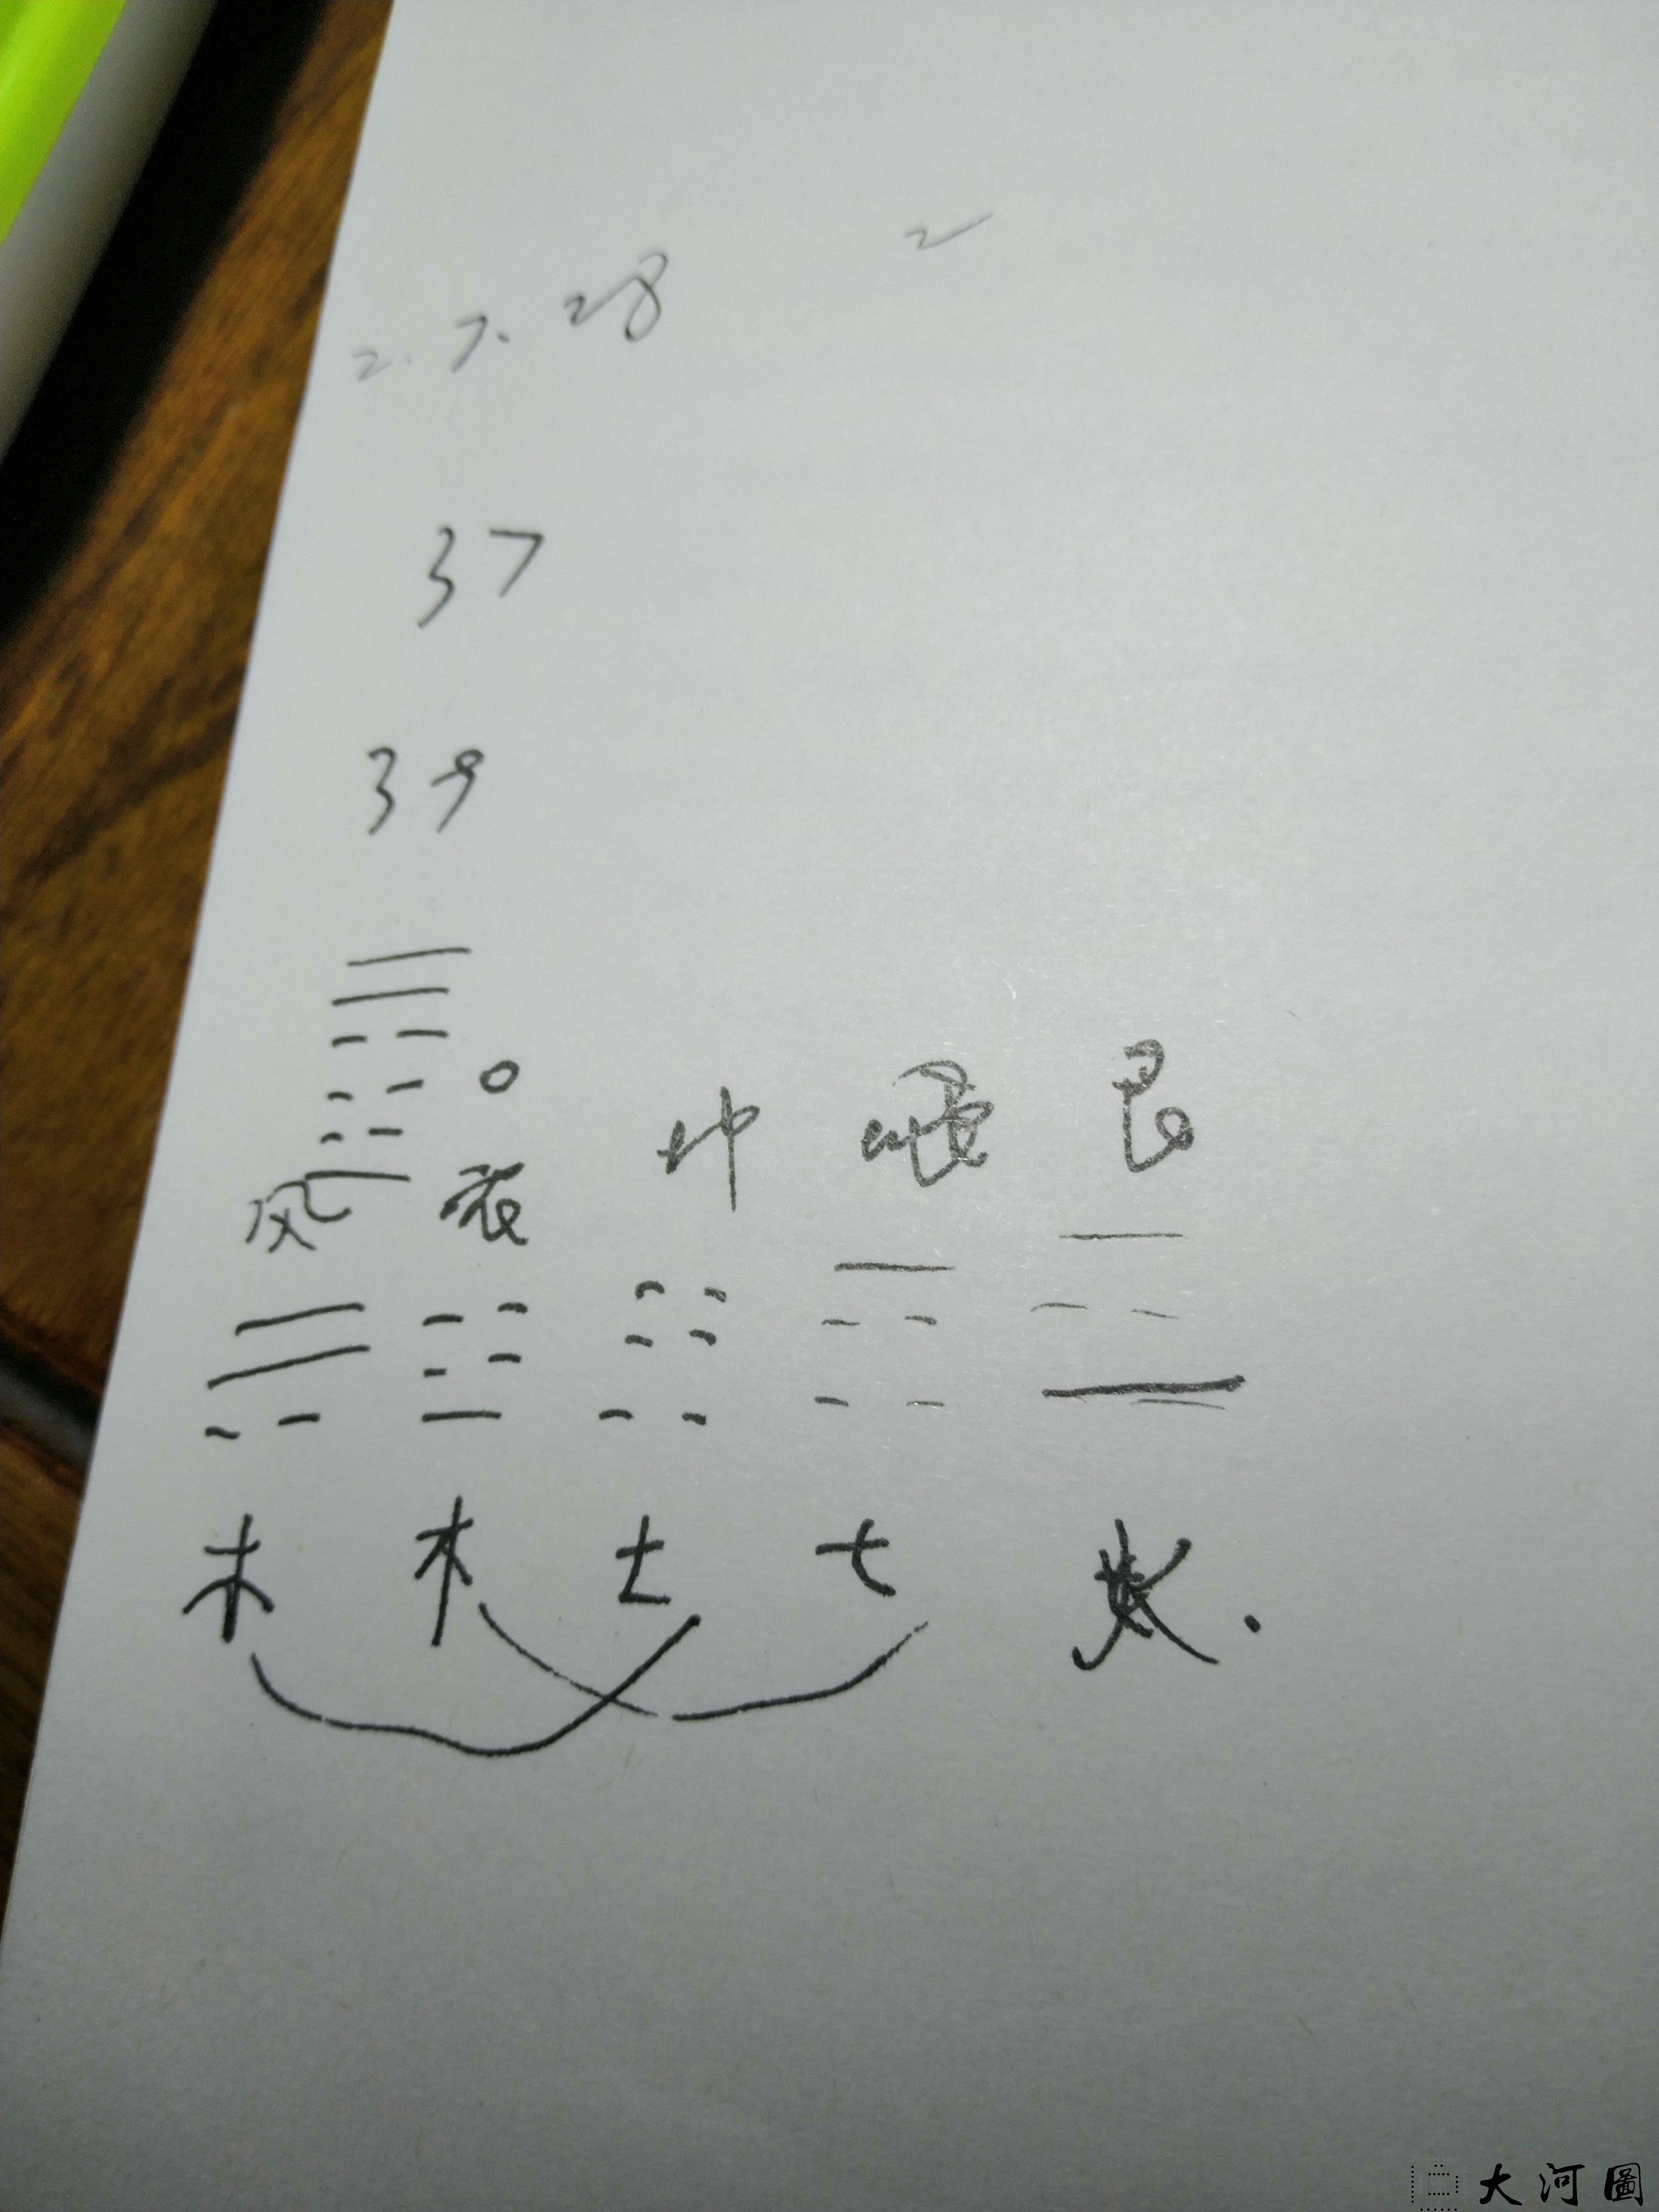 2
2. 7. 28
37
39
风 坤 艮
木 木 土 土
大河圖